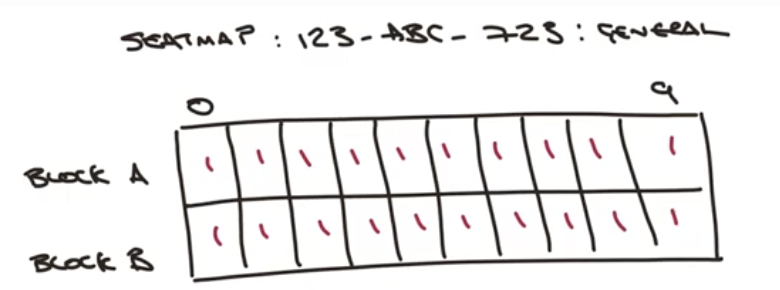 SEATMAP : 123-ABC-723 : GENERAL
0 9
BLOCK A 1 1 1 1 1 1 1 1 1 1
BLOCK B 1 1 1 1 1 1 1 1 1 1